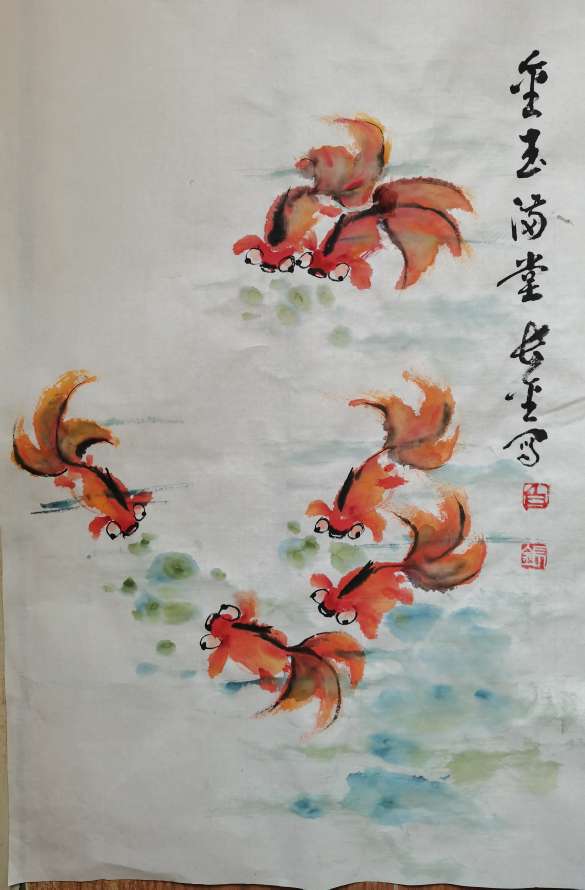 金玉满堂 长金写